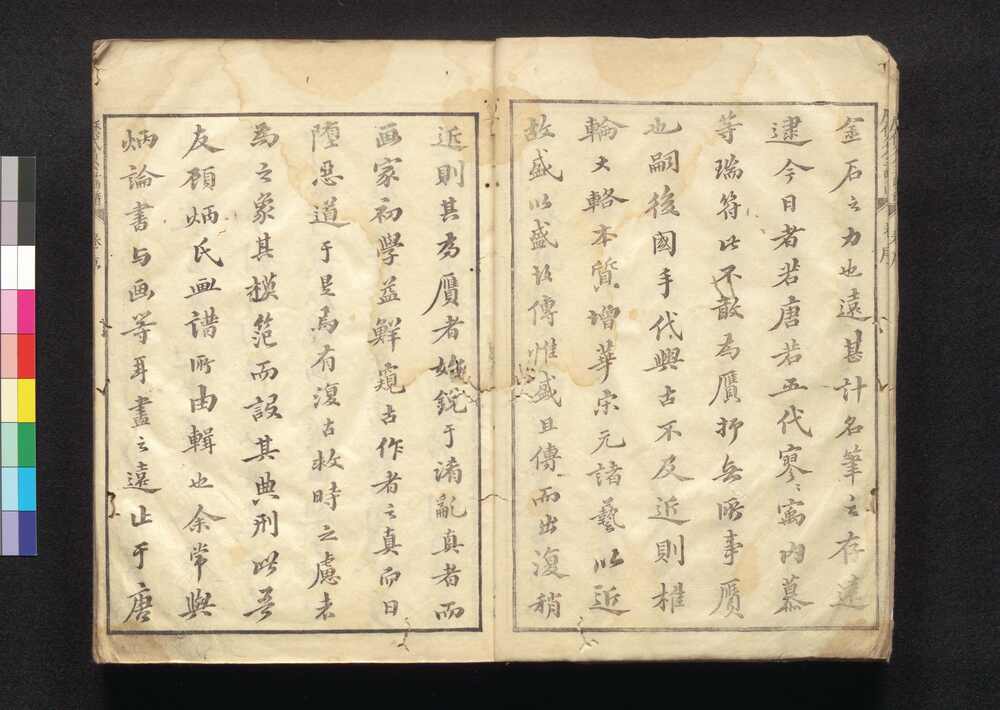 金石之力也遠甚計名筆之存遠
逮今日者若唐若五代寥〻寓内慕
等瑞符比不敢為贋抑無所事贋
也嗣後國手代興古不及近則椎
輪大輅本質增華宋元諸藝以近
故盛以盛故傳惟盛且傳而出復稍
近則其為贋者始銳于淆亂真者而
画家初學益鮮窺古作者之真而日
墮惡道于是焉有復古救時之慮者
為之象其模范而設其典刑此吾
友顧炳氏画譜所由輯也余常與
炳論書与画等耳書之遠止于唐